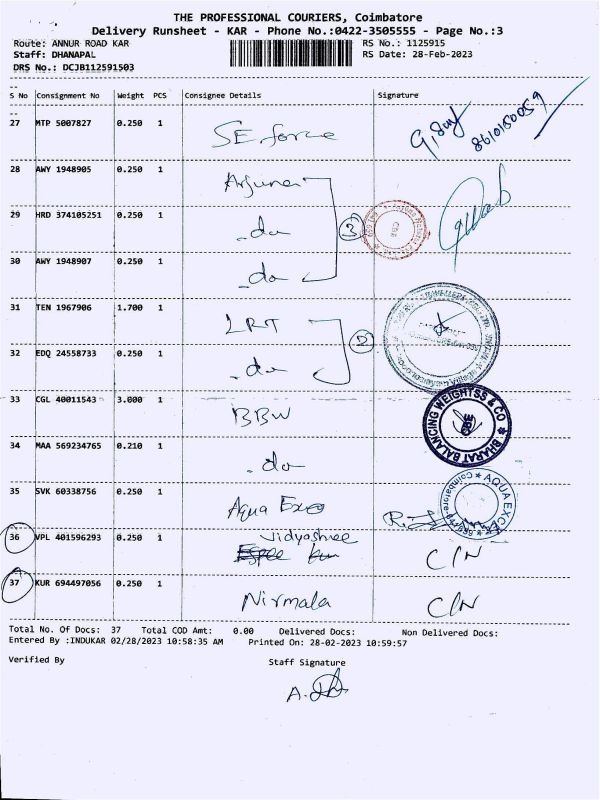 THE PROFESSIONAL COURIERS, Coimbatore
Delivery Runsheet - KAR - Phone No.:0422-3505555 - Page No.:3
Route: ANNUR ROAD KAR RS No.: 1125915
Staff: DHANAPAL RS Date: 28-Feb-2023
DRS No.: DCJB112591503
S No Consignment No Weight PCS Consignee Details Signature
27 MTP 5007827 0.250 1 SE force 8610150059
28 AWY 1948905 0.250 1 Arjuna
29 HRD 374105251 0.250 1 - do 3
30 AWY 1948907 0.250 1 - do
31 TEN 1967906 1.700 1 LRT
32 EDQ 24558733 0.250 1 - do 2
33 CGL 40011543 3.000 1 BBW
BHARAT BALANCING WEIGHTSS & CO
CBE
34 MAA 569234765 0.210 1 - do
35 SVK 60338756 0.250 1 Aqua
AQUA EXCE Coimbatore
36 VPL 401596293 0.250 1 Vidyashree C/N
37 KUR 694497056 0.250 1 Nirmala C/N
Total No. Of Docs: 37 Total COD Amt: 0.00 Delivered Docs: Non Delivered Docs:
Entered By :INDUKAR 02/28/2023 10:58:35 AM Printed On: 28-02-2023 10:59:57
Verified By Staff Signature